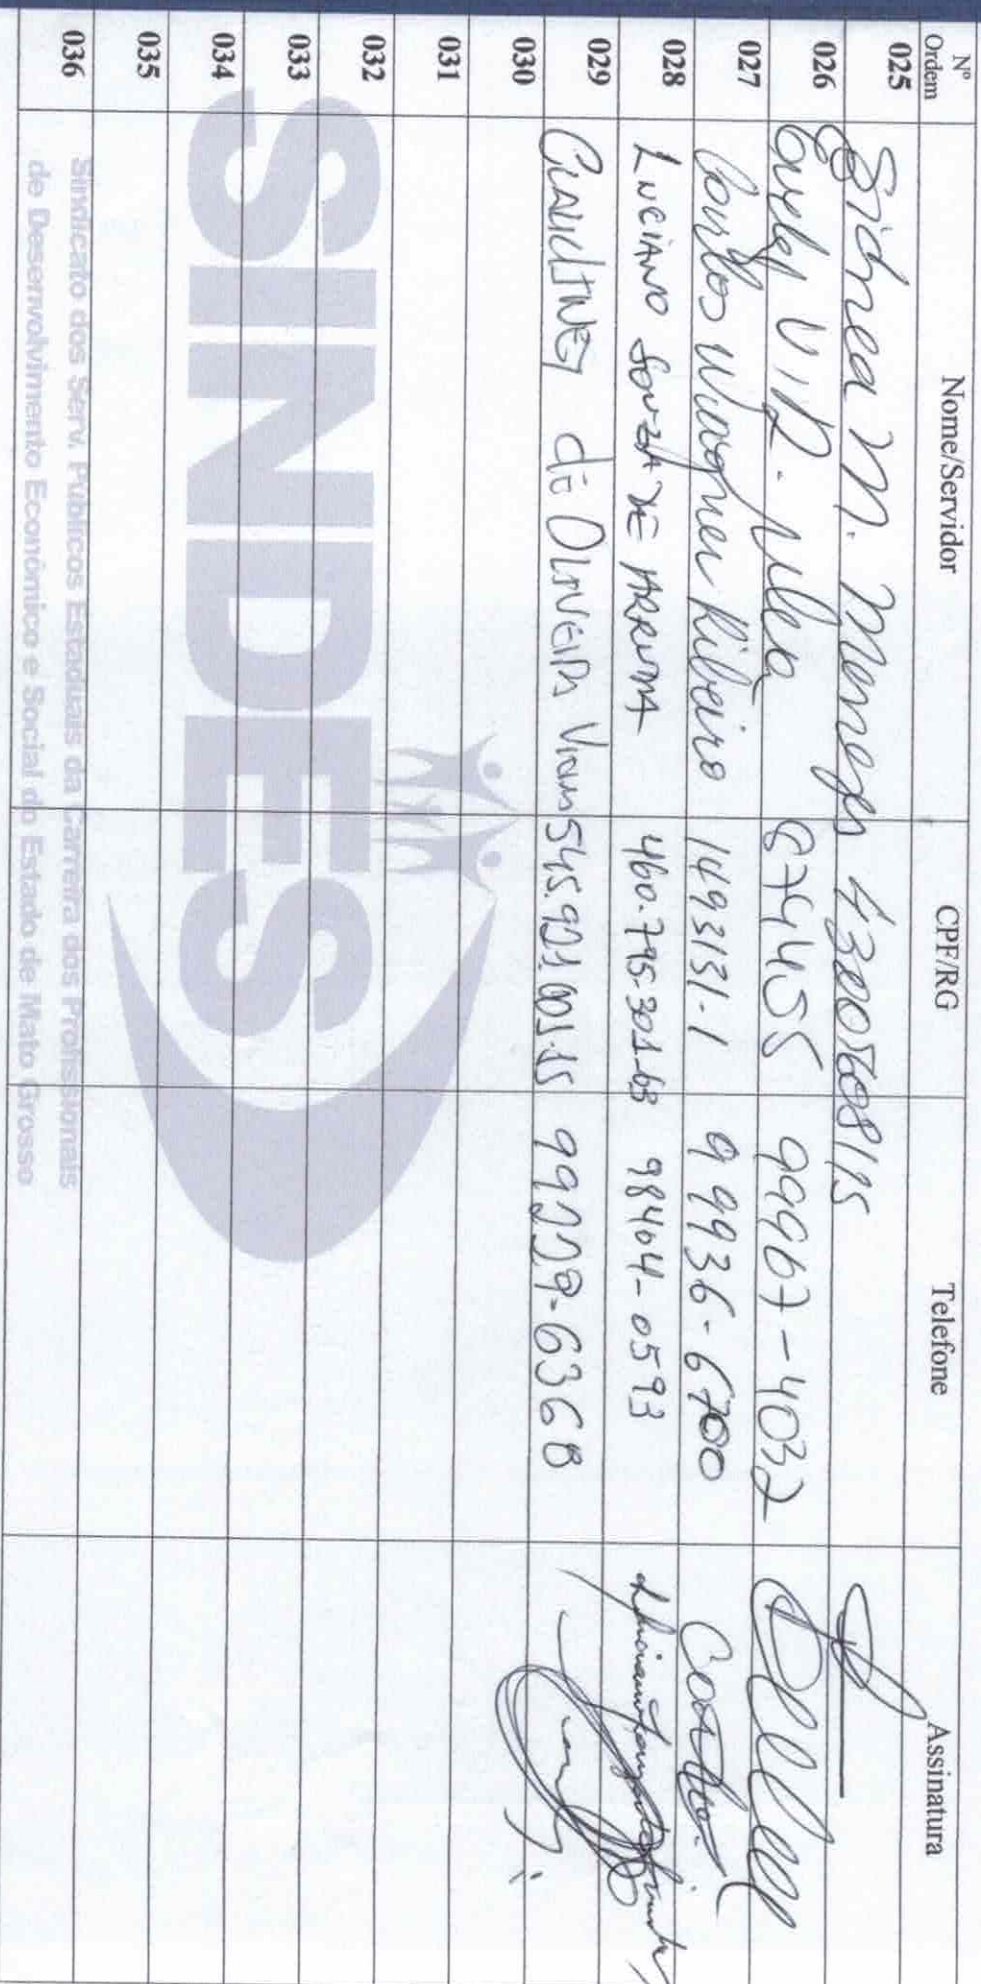 Nº Ordem Nome/Servidor CPF/RG Telefone Assinatura
025 Sidnea M. Menezes 43005608115
026 674455 99967-4037
027 Carlos Wagner Ribeiro 1493131-1 99936-6700
028 LUCIANO SOUZA DE ARRUDA 460.795.301-63 98404-0593
029 DE OLIVEIRA VIANA 99229-6368
030
031
032
033
034
035
036
SINDES
Sindicato dos Serv. Públicos Estaduais da Carreira dos Profissionais
de Desenvolvimento Econômico e Social do Estado de Mato Grosso